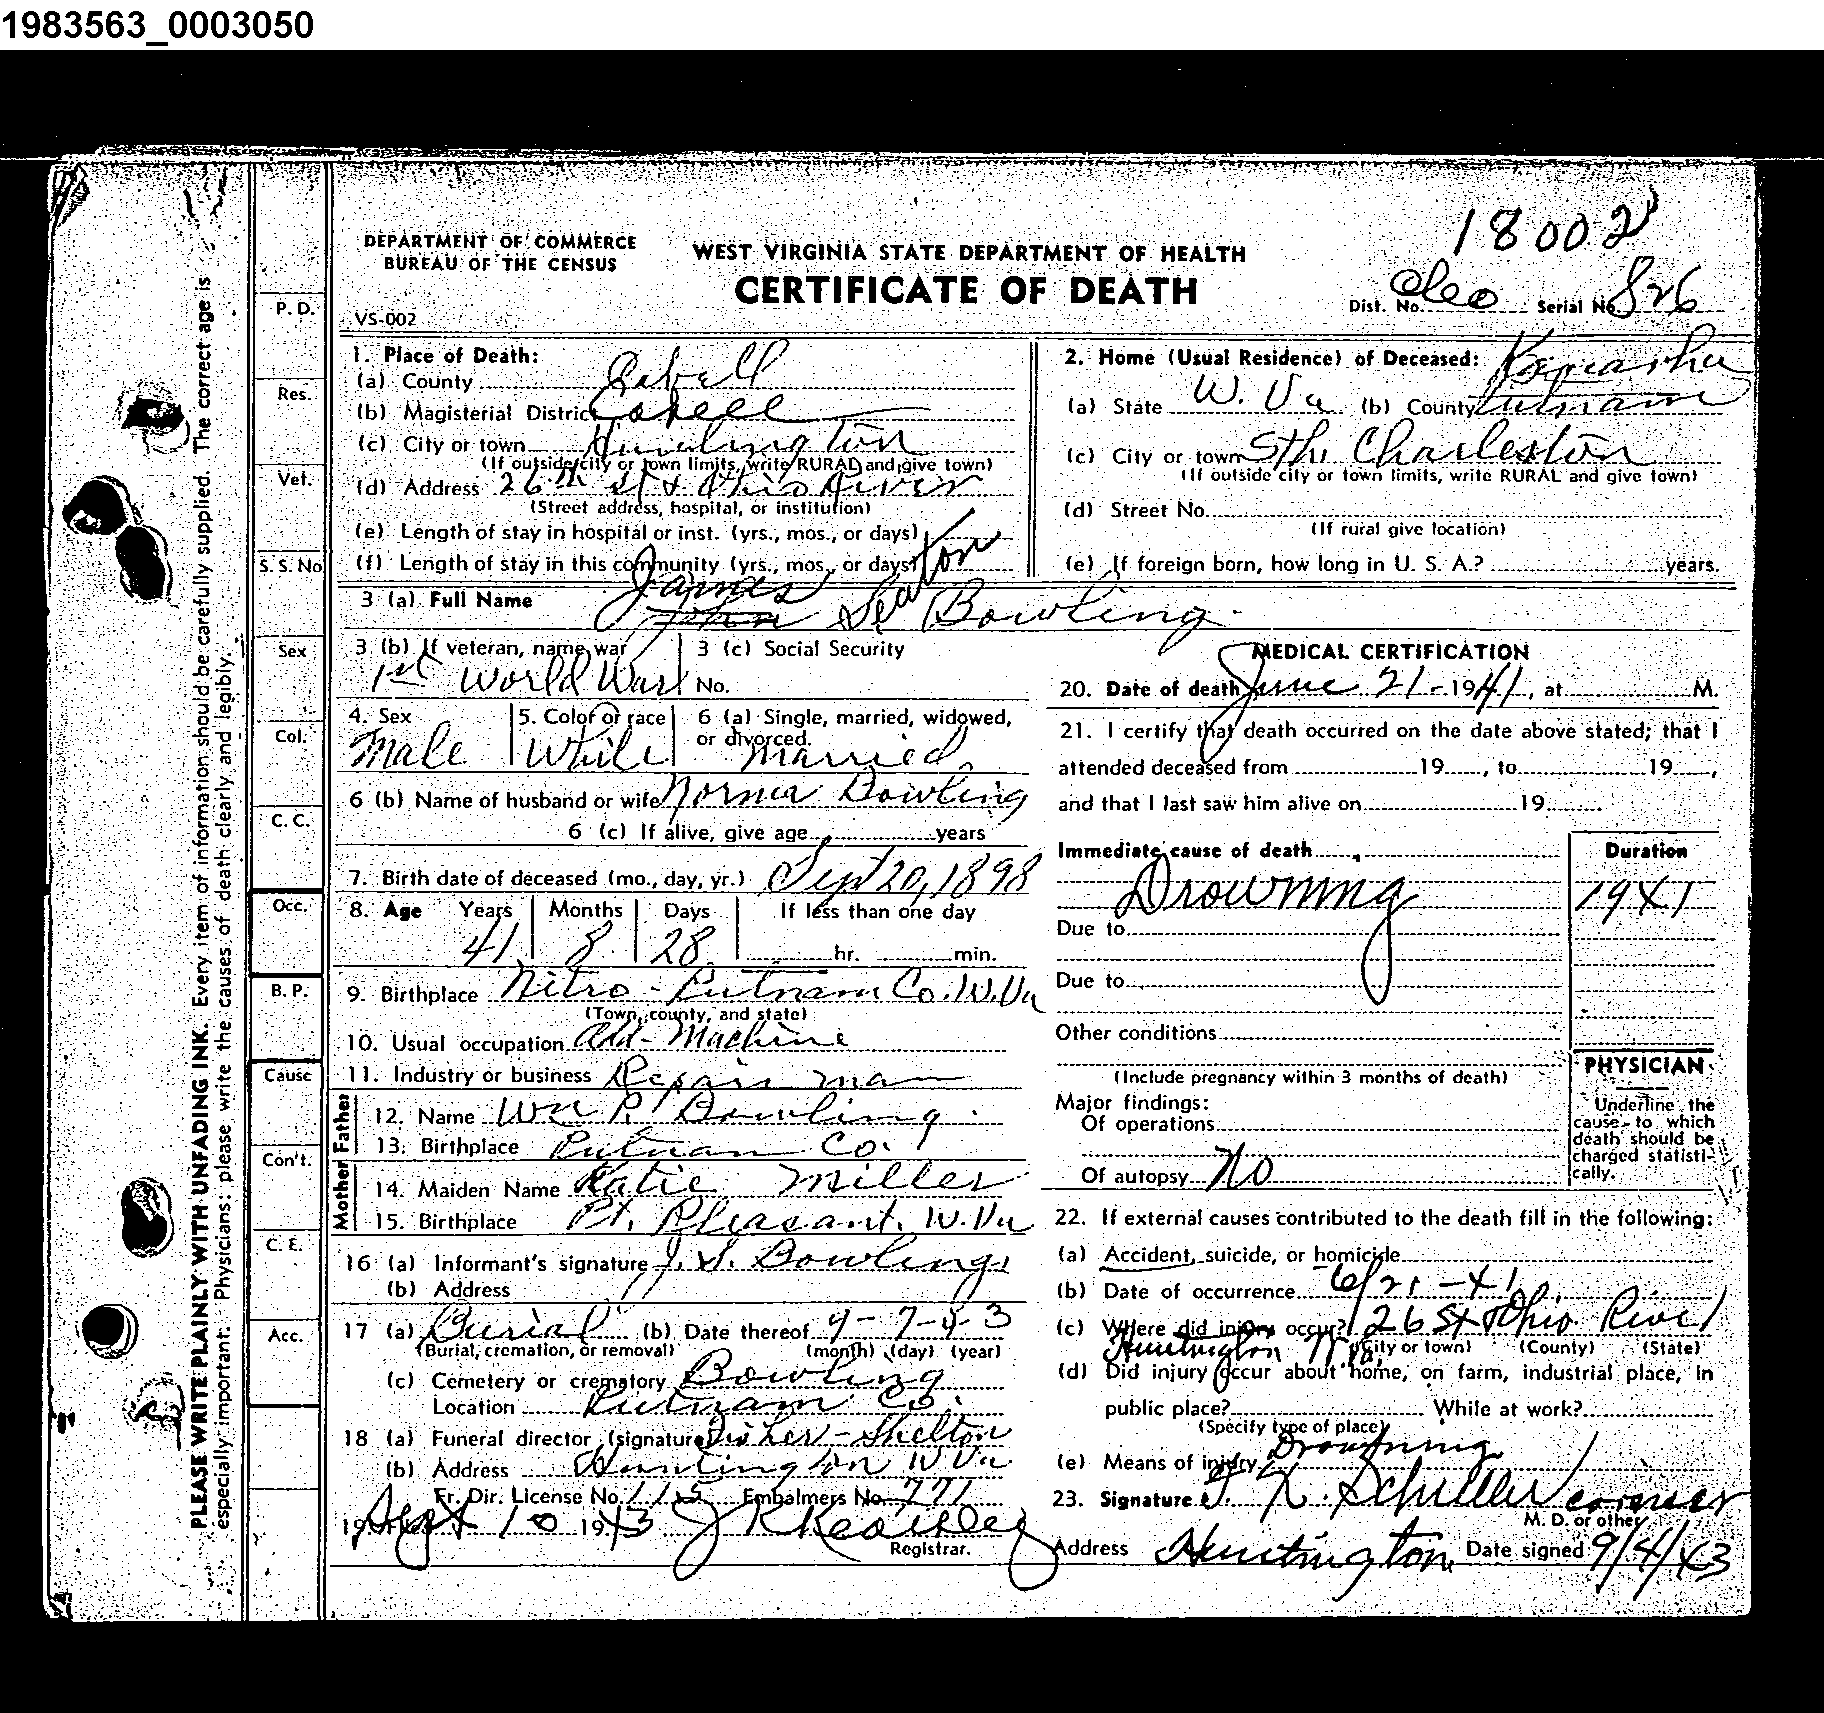 1983563_0003050
18002
DEPARTMENT OF COMMERCE
BUREAU OF THE CENSUS
WEST VIRGINIA STATE DEPARTMENT OF HEALTH
CERTIFICATE OF DEATH
Dist. No. Serial No. 826
VS-002
PLEASE WRITE PLAINLY WITH UNFADING INK. Every item of information should be carefully supplied. The correct age is
especially important. Physicians: please write the causes of death clearly and legibly.
P. D.
Res.
Vet.
S. S. No
Sex
Col.
C. C.
Occ.
B. P.
Cause
Con't.
C. E.
Acc.
1. Place of Death:
(a) County Cabell
(b) Magisterial District Cabell
(c) City or town Huntington
(If outside city or town limits, write RURAL and give town)
(d) Address 26th St & Ohio River
(Street address, hospital, or institution)
(e) Length of stay in hospital or inst. (yrs., mos., or days)
(f) Length of stay in this community (yrs., mos., or days)
2. Home (Usual Residence) of Deceased: Kanawha
(a) State W. Va (b) County Putnam
(c) City or town Sth. Charleston
(If outside city or town limits, write RURAL and give town)
(d) Street No.
(If rural give location)
(e) If foreign born, how long in U. S. A.? years.
3 (a) Full Name James John Seaton Bowling
3 (b) If veteran, name war 3 (c) Social Security
1st World War No.
4. Sex 5. Color or race 6 (a) Single, married, widowed,
or divorced.
Male White Married
6 (b) Name of husband or wife Norma Bowling
6 (c) If alive, give age years
7. Birth date of deceased (mo., day, yr.) Sept 20, 1898
8. Age Years Months Days If less than one day
41 8 28 hr. min.
9. Birthplace Nitro - Putnam Co. W. Va
(Town, county, and state)
10. Usual occupation Add- Machine
11. Industry or business Repair man
Father
12. Name Wm P. Bowling
13. Birthplace Putnam Co.
Mother
14. Maiden Name Katie Miller
15. Birthplace Pt. Pleasant, W. Va
16 (a) Informant's signature J. S. Bowling
(b) Address
17 (a) Burial (b) Date thereof 9-7-43
(Burial, cremation, or removal) (month) (day) (year)
(c) Cemetery or crematory Bowling
Location Putnam Co.
18 (a) Funeral director (signature) Shelton
(b) Address Huntington W Va
Fr. Dir. License No. 115 Embalmers No. 771
19 Sept 10 1943
Registrar.
MEDICAL CERTIFICATION
20. Date of death June 21-1941, at M.
21. I certify that death occurred on the date above stated; that I
attended deceased from 19 , to 19 ,
and that I last saw him alive on 19
Immediate cause of death Duration
Drowning 1941
Due to
Due to
Other conditions
(Include pregnancy within 3 months of death)
PHYSICIAN
Underline the
cause to which
death should be
charged statisti-
cally.
Major findings:
Of operations
Of autopsy No
22. If external causes contributed to the death fill in the following:
(a) Accident, suicide, or homicide
(b) Date of occurrence 6/21-41
(c) Where did injury occur? 26 St Ohio River
Huntington W Va. (City or town) (County) (State)
(d) Did injury occur about home, on farm, industrial place, in
public place? While at work?
(Specify type of place)
(e) Means of injury Drowning
23. Signature Schiller coroner
M. D. or other
Address Huntington Date signed 9/4/43